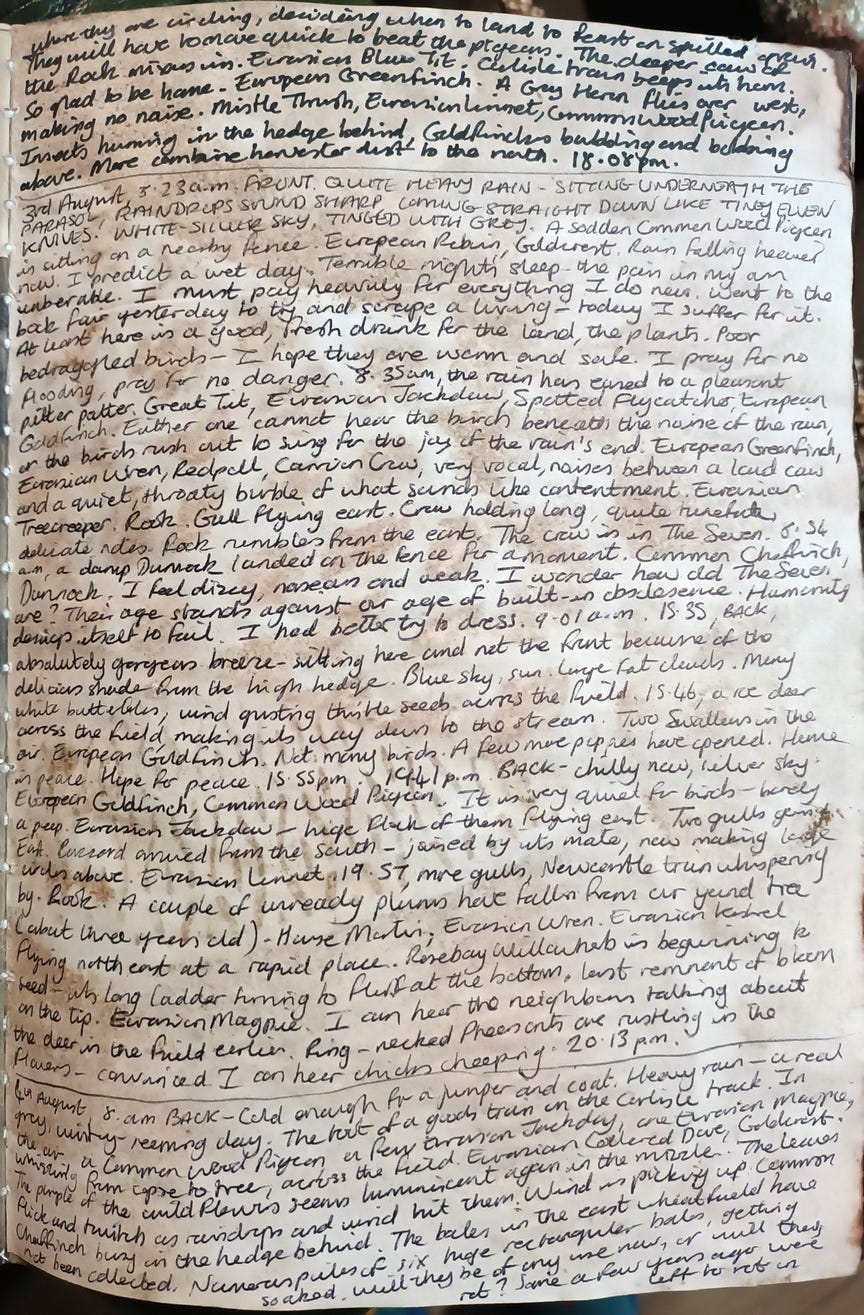 where they are circling, deciding when to land to feast on spilled grain.
They will have to move quick to beat the pigeons. The deeper caw of
the Rook mixes in. Eurasian Blue Tit. Carlisle train beeps its horn.
So glad to be home. European Greenfinch. A Grey Heron flies over west,
making no noise. Mistle Thrush, Eurasian Linnet, Common Wood Pigeon.
Insects humming in the hedge behind, Goldfinches bubbling and bobbing
above. More combine harvester dust to the north. 18.08pm.
3rd August, 8.23a.m. FRONT. QUITE HEAVY RAIN - SITTING UNDERNEATH THE
PARASOL. RAINDROPS SOUND SHARP, COMING STRAIGHT DOWN LIKE TINY ELVEN
KNIVES. WHITE-SILVER SKY, TINGED WITH GREY. A sodden Common Wood Pigeon
is sitting on a nearby fence. European Robin, Goldcrest. Rain falling heavier
now. I predict a wet day. Terrible nights sleep - the pain in my arm
unberable. I must pay heavily for everything I do now. Went to the
book fair yesterday to try and scrape a living - today I suffer for it.
At least here is a good, fresh drink for the land, the plants. Poor
bedraggled birds - I hope they are warm and safe. I pray for no
flooding, pray for no danger. 8.35am, the rain has eased to a pleasant
pitter patter. Great Tit, Eurasian Jackdaw, Spotted Flycatcher, European
Goldfinch. Either one cannot hear the birds beneath the noise of the rain,
or the birds rush out to sing for the joy of the rain's end. European Greenfinch,
Eurasian Wren, Redpoll, Carrion Crow, very vocal, noises between a loud caw
and a quiet, throaty burble of what sounds like contentment. Eurasian
Treecreeper. Rook. Gull flying east. Crow holding long, quite tuneful,
delicate notes. Rook rumbles from the east. The crow is in The Seven. 8.54
a.m, a damp Dunnock landed on the fence for a moment. Common Chaffinch,
Dunnock. I feel dizzy, naseous and weak. I wonder how old The Seven
are? Their age stands against our age of built-in obsolesence. Humanity
designs itself to fail. I had better try to dress. 9.01a.m. 15.35, BACK,
absolutely gorgeous breeze - sitting here and not the front because of the
delicious shade from the high hedge. Blue sky, sun. Large fat clouds. Many
white butterflies, wind gusting thistle seeds across the field. 15.46, a roe deer
across the field, making its way down to the stream. Two Swallows in the
air. European Goldfinch. Not many birds. A few more poppies have opened. Home
in peace. Hope for peace. 15.55pm. 19.41p.m. BACK - chilly now, silver sky.
European Goldfinch, Common Wood Pigeon. It is very quiet for birds - barely
a peep. Eurasian Jackdaw - huge flock of them flying east. Two gulls going
East. Buzzard arrived from the South - joined by its mate, now making large
circles above. Eurasian Linnet. 19.57, more gulls, Newcastle train whispering
by. Rook. A couple of unready plums have falln from our young tree
(about three years old) - House Martin, Eurasian Wren. Eurasian Kestrel
flying north east at a rapid place. Rosebay Willowherb is beginning to
seed - its long ladder turning to fluff at the bottom, last remnant of bloom
on the tip. Eurasian Magpie. I can hear the neighbours talking about
the deer in the field earlier. Ring-necked Pheasants are rustling in the
flowers - convinced I can hear chicks cheeping. 20.13pm.
August, 8.am BACK - Cold enough for a jumper and coat. Heavy rain - a real
grey, wintry-seeming day. The toot of a goods train on the Carlisle track. In
the air a Common Wood Pigeon, a few Eurasian Jackdaw, one Eurasian Magpie,
whizzing from copse to tree, across the field. Eurasian Collered Dove, Goldcrest.
The purple of the wild flowers seems luminescent again in the mizzle. The leaves
flick and twitch as raindrops and wind hit them. Wind is picking up. Common
Chaffinch busy in the hedge behind. The bales in the east wheatfield have
not been collected. Numerous piles of six huge rectangular bales, getting
soaked. Will they be of any use now, or will they
rot? Some a few years ago were
left to rot in